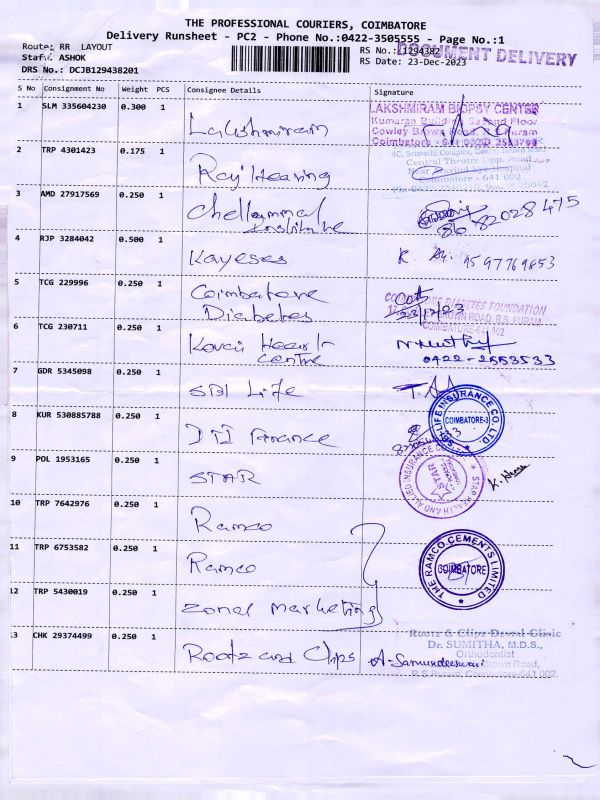 THE PROFESSIONAL COURIERS, COIMBATORE
Delivery Runsheet - PC2 - Phone No.:0422-3505555 - Page No.:1
Route: RR LAYOUT
Staff: ASHOK
DRS No.: DCJB129438201
RS No.: 1294382
RS Date: 23-Dec-2023
DOCUMENT DELIVERY
S No Consignment No Weight PCS Consignee Details Signature
1 SLM 335604230 0.300 1 Lakshmiram
LAKSHMIRAM BIOPSY CENTER
Kumaran Building Second Floor
Cowley Brown Road, R.S.Puram
Coimbatore
2 TRP 4301423 0.175 1 Rayi Hearing
Central Theatre Opp. Road
Near Aravind Eye Hospital
Coimbatore - 641 002
3 AMD 27917569 0.250 1 Chellammal
Institute
86 82028 475
4 RJP 3284042 0.500 1 Kayeses
9597769853
5 TCG 229996 0.250 1 Coimbatore
Diabetes
DIABETES FOUNDATION
BROWN ROAD, R.S.PURAM
COIMBATORE-641 002
23/12/23
6 TCG 230711 0.250 1 Kovai Heart
Centre
0422-2553533
7 GDR 5345098 0.250 1 SBI Life
LIFE INSURANCE CO. LTD.
COIMBATORE-3
8 KUR 530885788 0.250 1 Finance
9 POL 1953165 0.250 1 STAR
STAR HEALTH AND ALLIED INSURANCE CO
STAR
10 TRP 7642976 0.250 1 Ramco
11 TRP 6753582 0.250 1 Ramco
THE RAMCO CEMENTS LIMITED
COIMBATORE
12 TRP 5430019 0.250 1 Zonal Marketing
13 CHK 29374499 0.250 1 Rootz and Clips
Rootz & Clipz Dental Clinic
Dr. SUMITHA, M.D.S.,
Orthodontist
Brown Road,
R.S.Puram, Coimbatore-641 002.